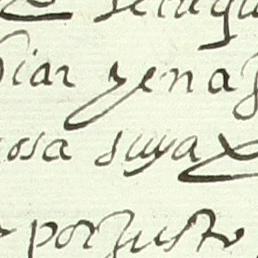 iar y en a
osa suya
por Justo